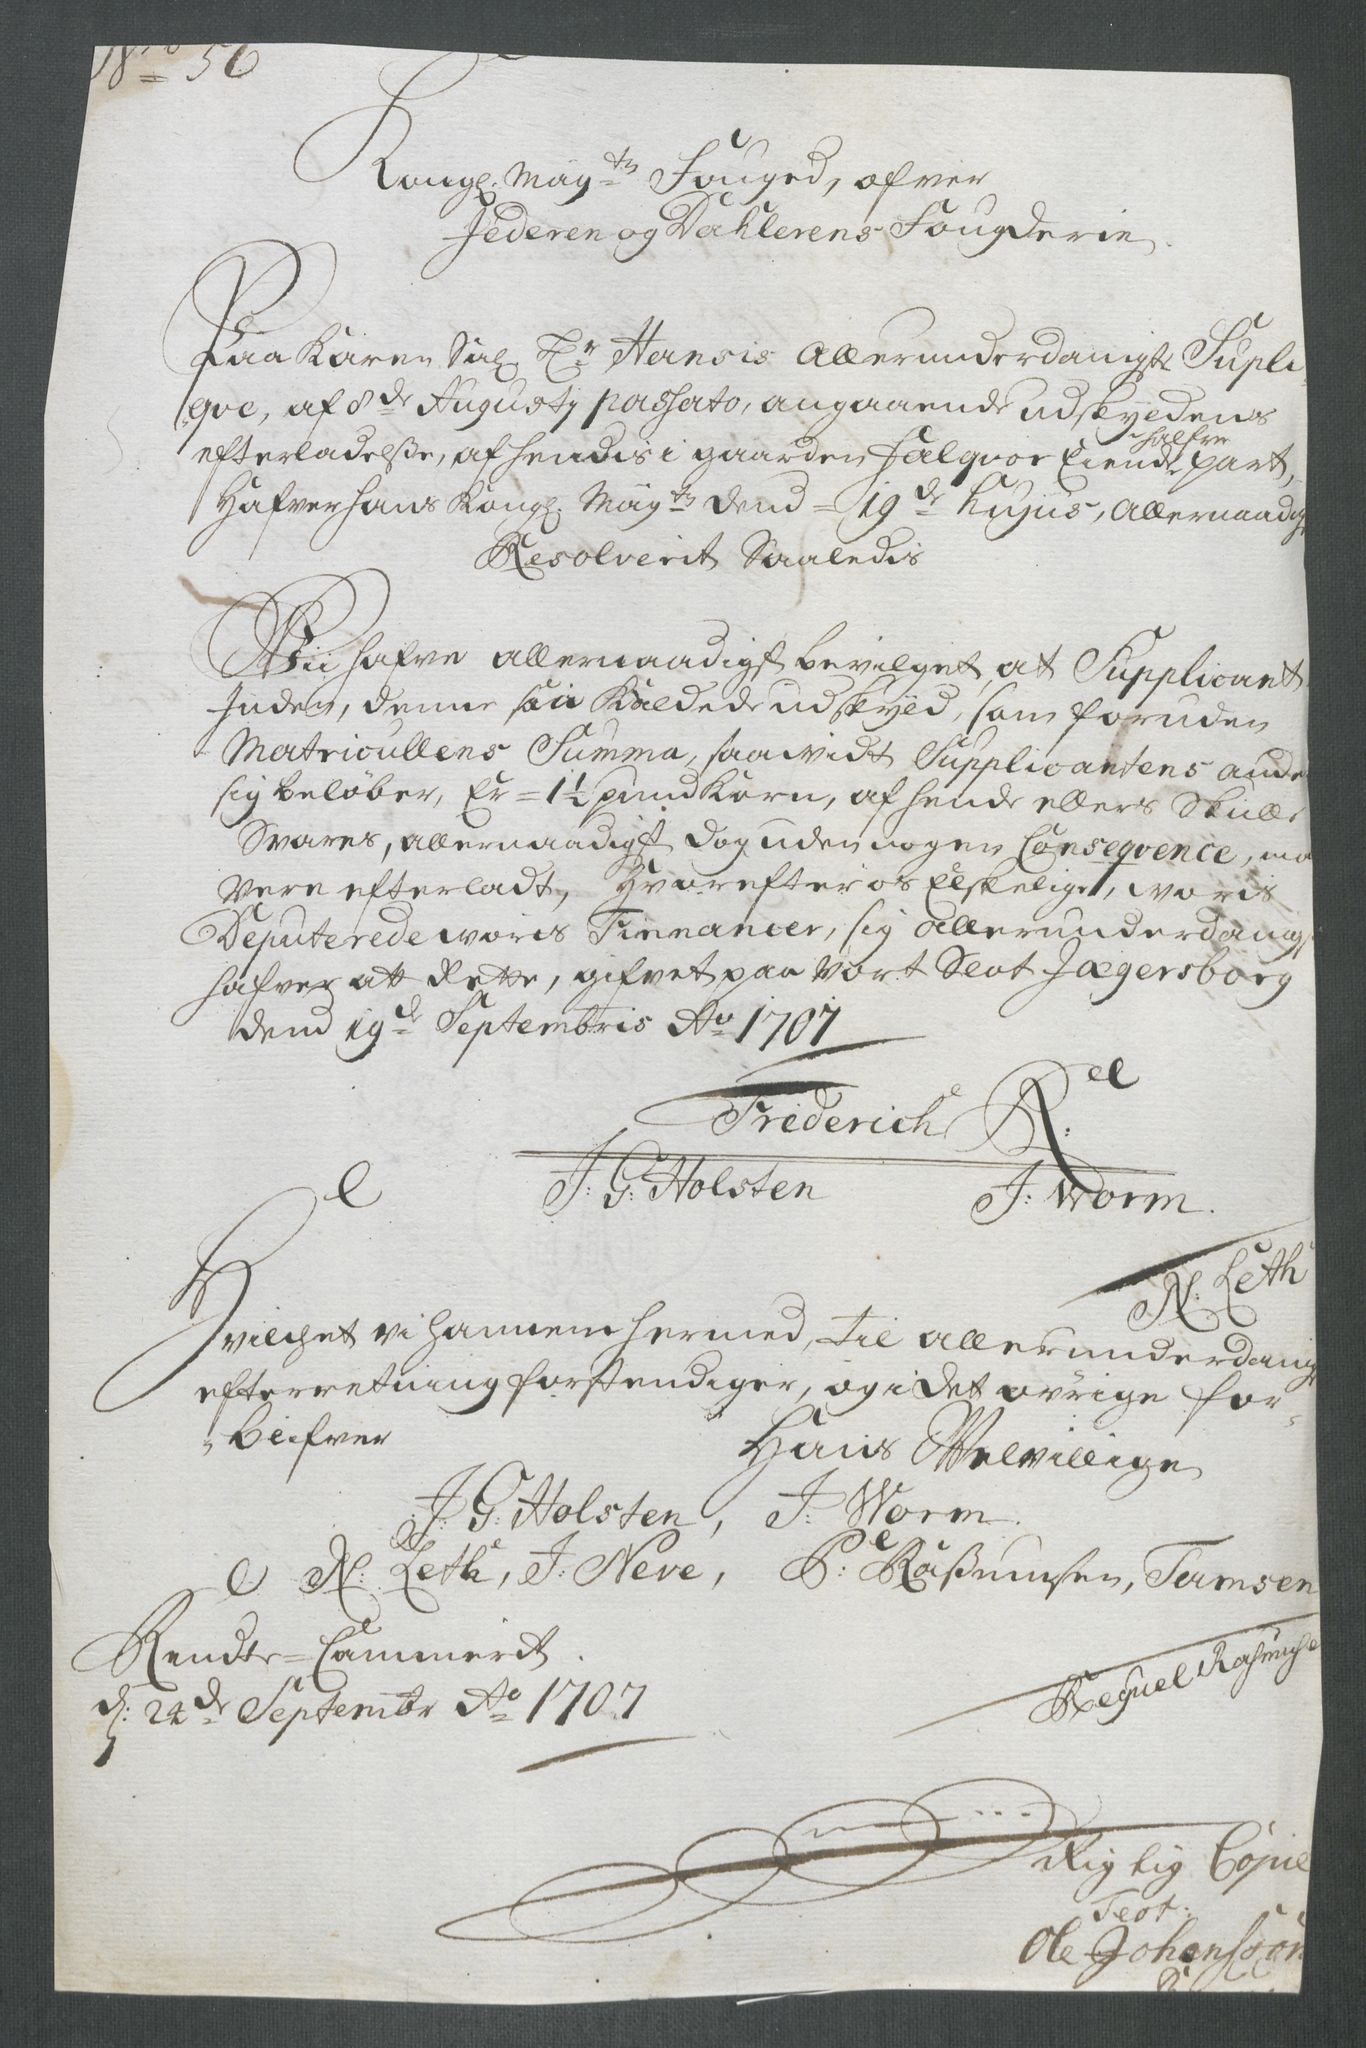 N.o 56
Kongl. May.tz Fouged, ofver
Jederen og Dahlerens Fougderie.
Paa Karen Sal. Hr. Hansis Allerunderdanigste Supli-
qve, af 8de Augusty passato, angaaende udskyldens
efterladelsse, af hendis i gaarden Jalqvor Eiende halfve part,
Hafver hans Kongl. May.tz dend 19de hujus, Allernaadigst
Resolverit Saaledis
Wii hafve allernaadigst bevilget, at Supplicant
Inden, denne saa Kaldede udskyld, som foruden
Matricullens Summa, saavidt Supplicantens andel
sig beløber, Er = 1½ pund Korn, af hende ellers Skulle
Svares, allernaadigst dog uden nogen Conseqvence, maa
være efterladt, Hvorefter os Elskelige, woris
Deputerede woris Finnancer, sig allerunderdanigst
hafver att Rette, gifvet paa Vort Slot Jægersborg
dend 19de Septembris Ao 1707
Friderich R:
J: G: Holsten J: Worm.
N: Leth
Hvilchet vi hannem hermed, til allerunderdanigst
efterretning forstendiger, og i det øvrige for-
blifver
Hans Welvillige
J: G: Holsten, J: Worm.
N: Leth, J: Neve, P: Rasmussen, Tamsen
Rendte-Cammeret
d: 24de Septembr Ao 1707
Rigtig Copie
Test:
Ole Johanssøn